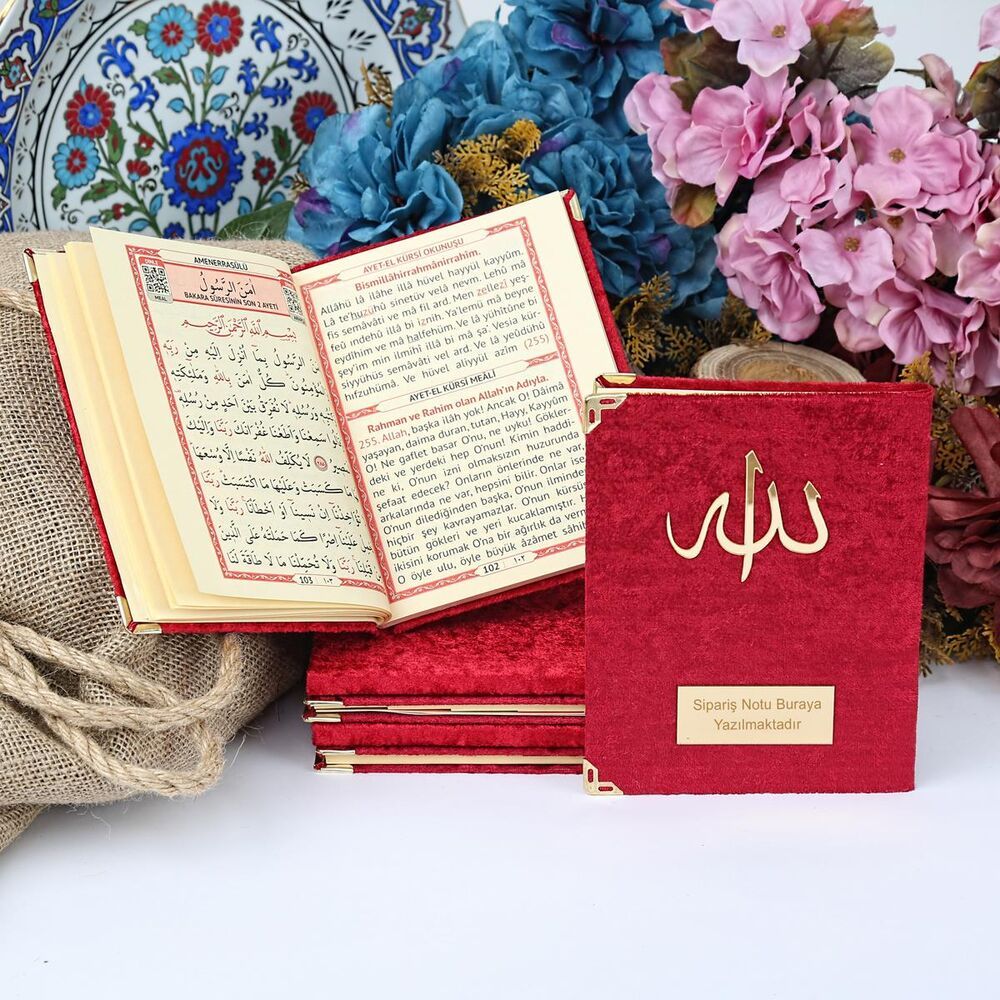 DİNLE
MEAL
AMENERRASÛLÜ
اٰمَنَ الرَّسُولُ
BAKARA SÛRESİNİN SON 2 AYETİ
بِسْمِ اللّٰهِ الرَّحْمٰنِ الرَّحِيمِ
الرَّسُولُ بِمَٓا اُنْزِلَ اِلَيْهِ مِنْ رَبِّه۪
كُلٌّ اٰمَنَ بِاللّٰهِ وَمَلٰٓئِكَتِه۪
وَرُسُلِه۪ لَا نُفَرِّقُ بَيْنَ اَحَدٍ مِنْ رُسُلِه۪
سَمِعْنَا وَاَطَعْنَا غُفْرَانَكَ رَبَّنَا وَاِلَيْكَ
لَا يُكَلِّفُ اللّٰهُ نَفْسًا اِلَّا وُسْعَهَا
مَا كَسَبَتْ وَعَلَيْهَا مَا اكْتَسَبَتْ رَبَّنَا
تُؤَاخِذْنَٓا اِنْ نَس۪ينَٓا اَوْ اَخْطَاْنَا رَبَّنَا
عَلَيْنَٓا اِصْرًا كَمَا حَمَلْتَهُ عَلَى الَّذ۪ينَ
قَبْلِنَا رَبَّنَا وَلَا تُحَمِّلْنَا مَا لَا طَاقَةَ لَنَا
103 ١٠٣
AYET-EL KÜRSİ OKUNUŞU
Bismillâhirrahmânirrahîm.
Allâhü lâ ilâhe illâ hüvel hayyül kayyûm.
Lâ te'huzu hû sinetüv velâ nevm. Lehû mâ
fis semâvâti ve mâ fil ard. Men zellezî yeş-
feü ındehû illâ bi iznih. Ya'lemü mâ beyne
eydîhim ve mâ halfehüm. Ve lâ yühîtûne bi
şey'im min ilmihî illâ bi mâ şâ'. Vesia kür-
siyyühüs semâvâti vel ard. Ve lâ yeûdühû
hıfzuhümâ. Ve hüvel aliyyül azîm (255)
AYET-EL KÜRSİ MEÂLİ
Rahman ve Rahim olan Allah'ın Adıyla.
255. Allah, başka ilâh yok! Ancak O! Dâimâ
yaşayan, daima duran, tutan, Hayy, Kayyûm
O! Ne gaflet basar O'nu, ne uyku! Gökler-
deki ve yerdeki hep O'nun! Kimin haddi-
ne ki, O'nun izni olmaksızın huzurunda
şefaat edecek? Onların önlerinde ne var,
arkalarında ne var, hepsini bilir. Onlar ise
O'nun dilediğinden başka, O'nun ilminden
hiçbir şey kavrayamazlar. O'nun kürsüsü
bütün gökleri ve yeri kucaklamıştır.
ikisini korumak O'na bir ağırlık da vermez
O öyle ulu, öyle büyük âzâmet sâhibi
102 ١٠٢
الله
Sipariş Notu Buraya
Yazılmaktadır